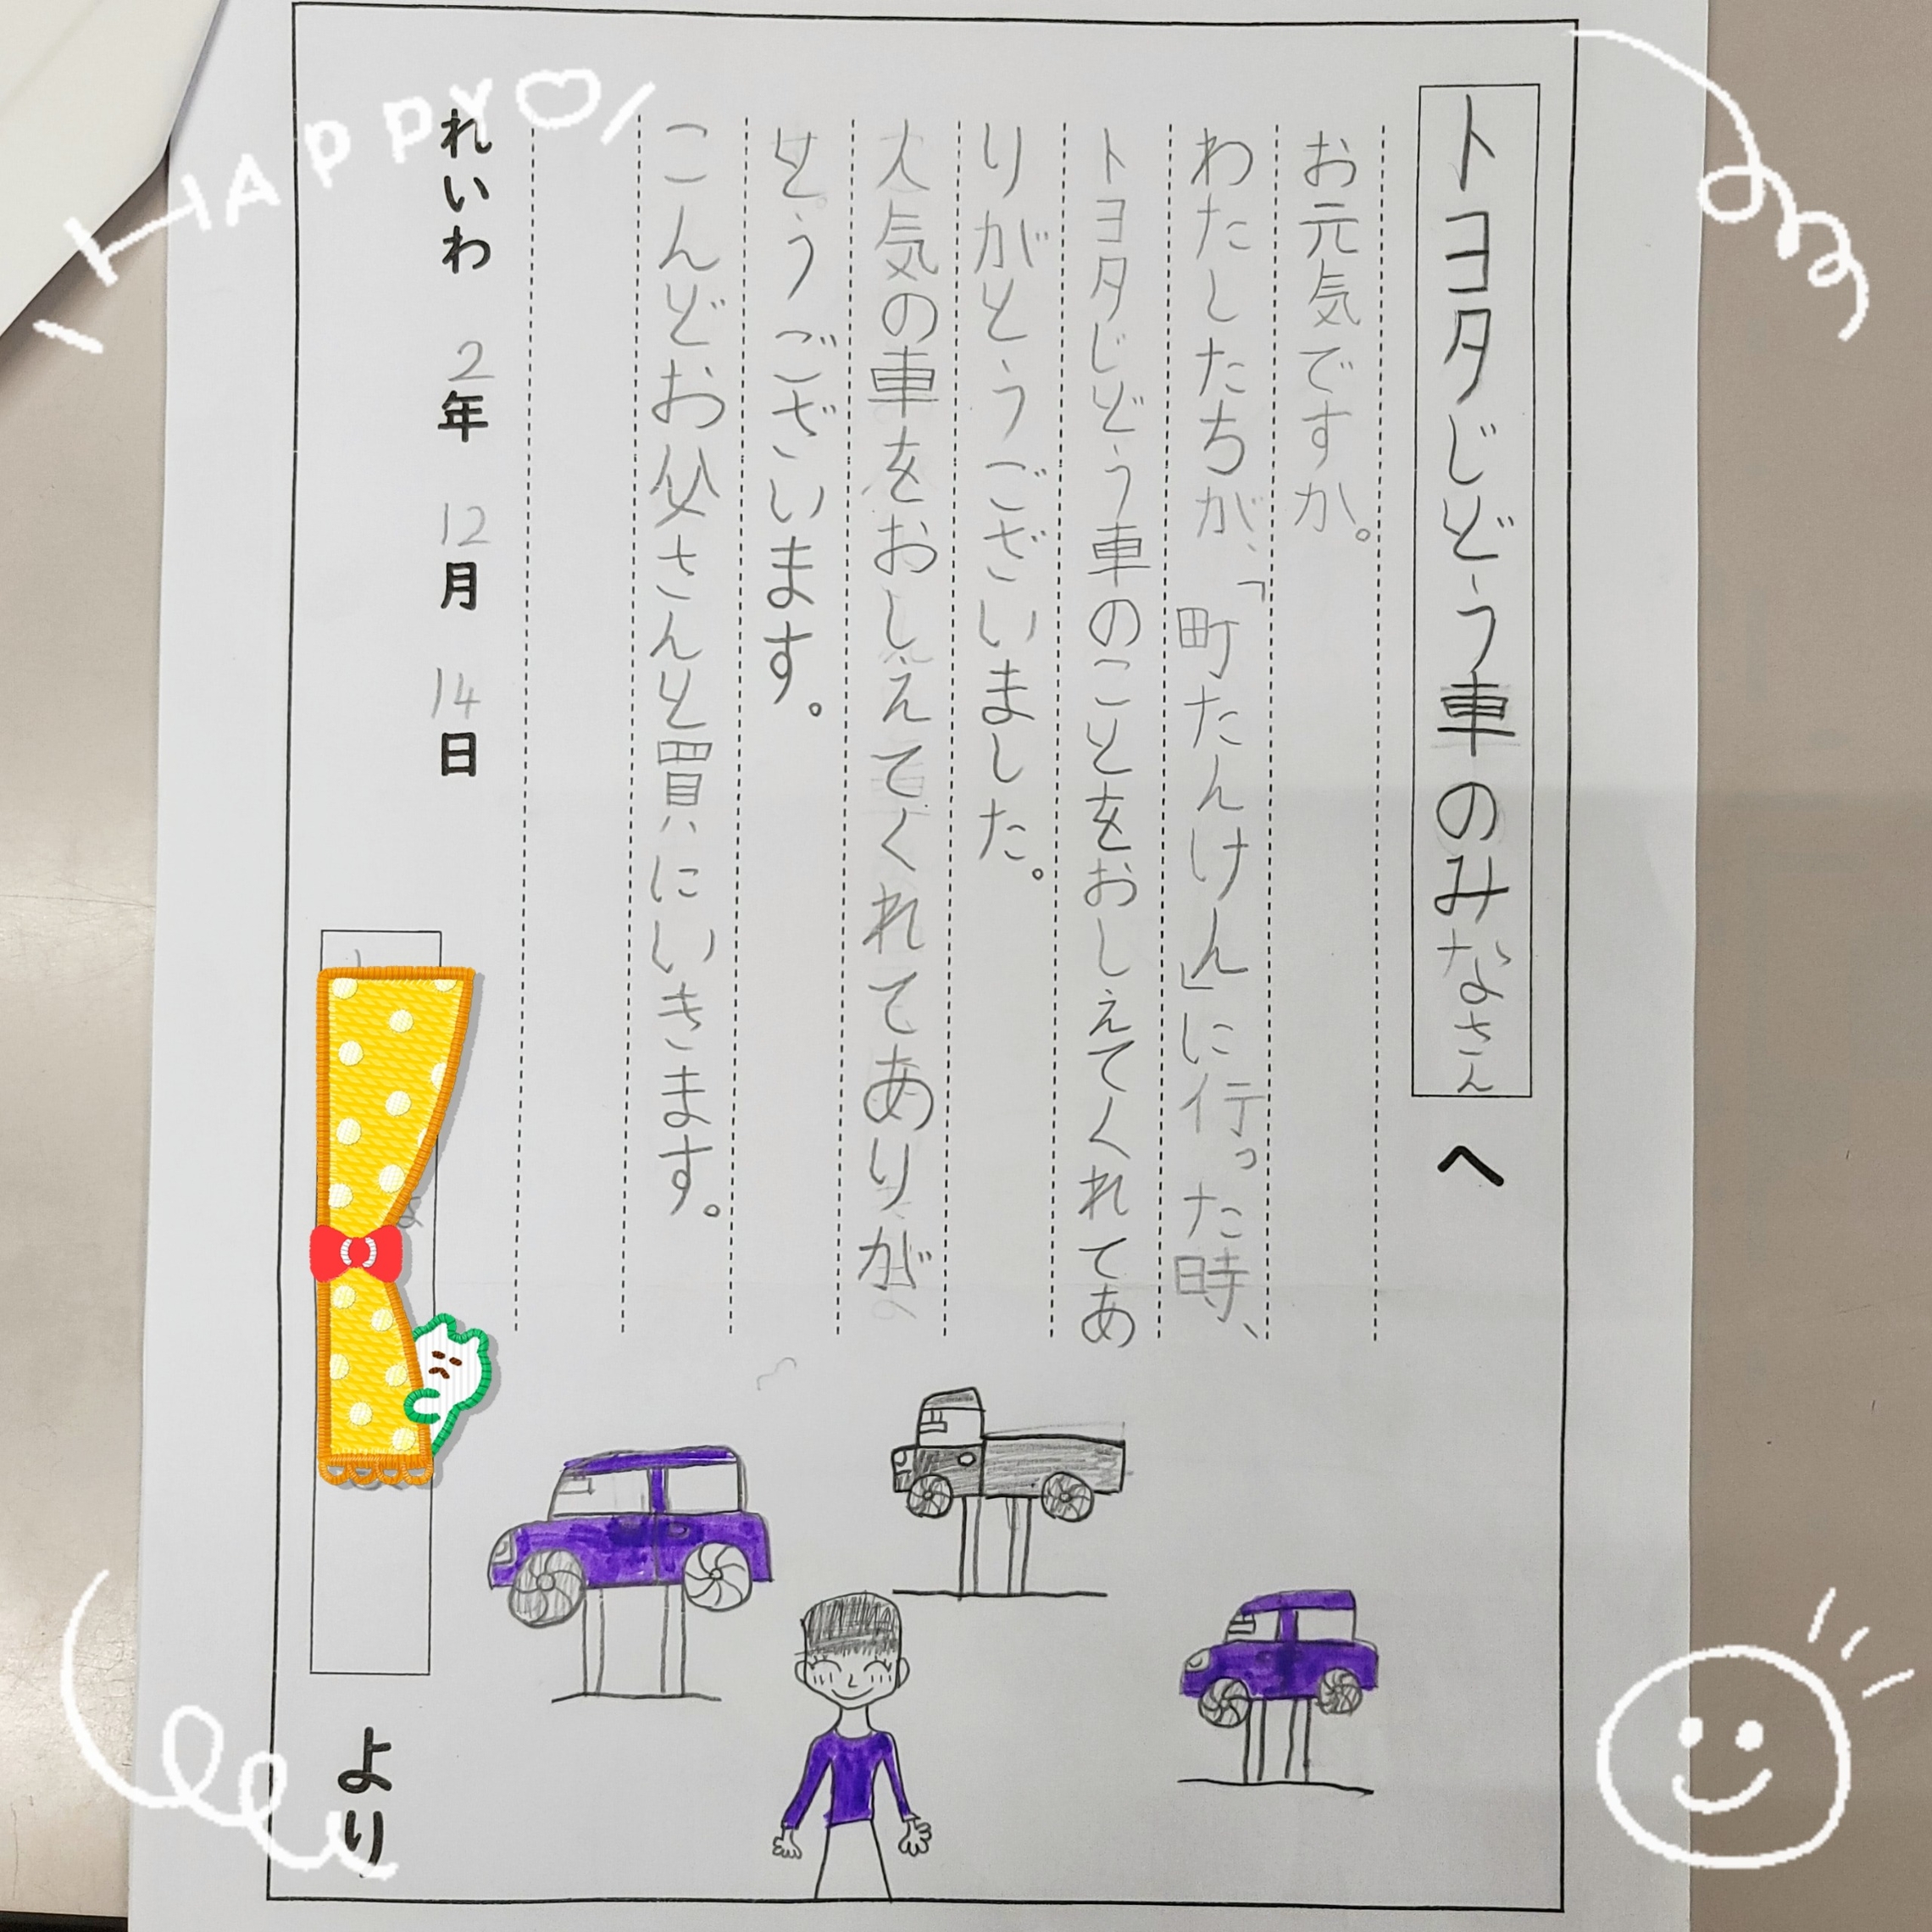 トヨタじどう車のみなさん へ
お元気ですか。
わたしたちが、「町たんけん」に行った時、
トヨタじどう車のことをおしえてくれてあ
りがとうございました。
人気の車をおしえてくれてありが
とうございます。
こんどお父さんと買いにいきます。
れいわ 2年 12月 14日
より
HAPPY